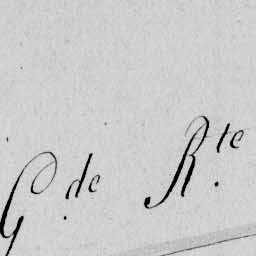 G.de R.te